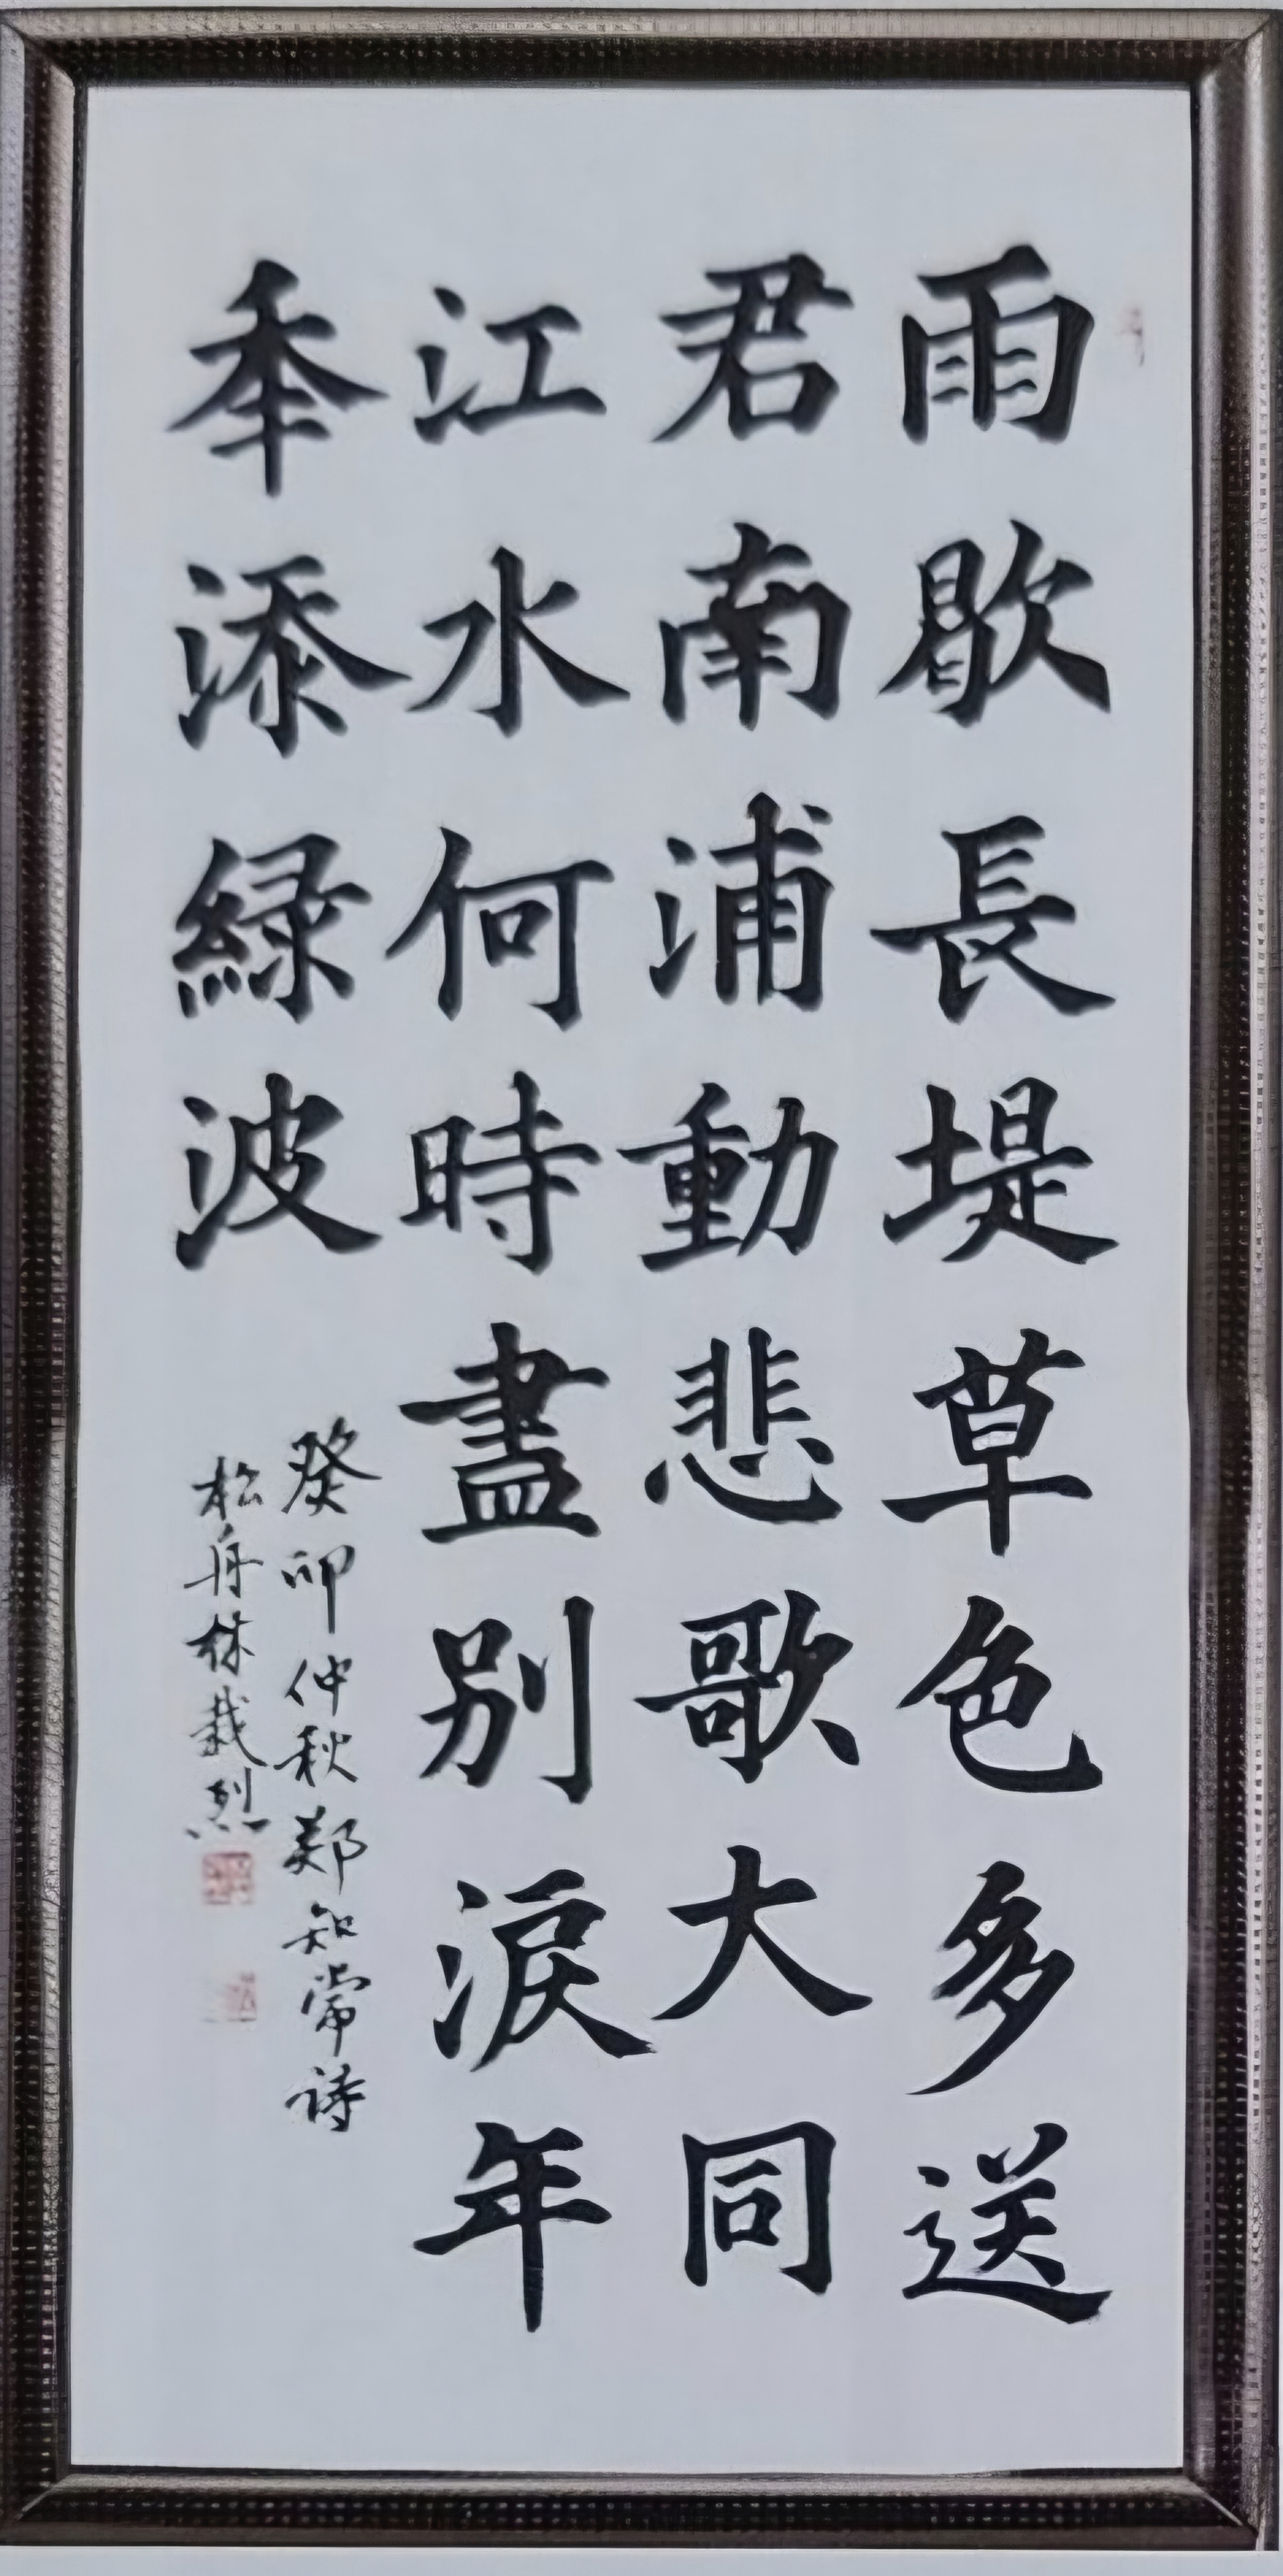 雨歇長堤草色多送
君南浦動悲歌大同
江水何時盡別淚年
秊添綠波
癸卯仲秋鄭知常詩
松舟林栽烈